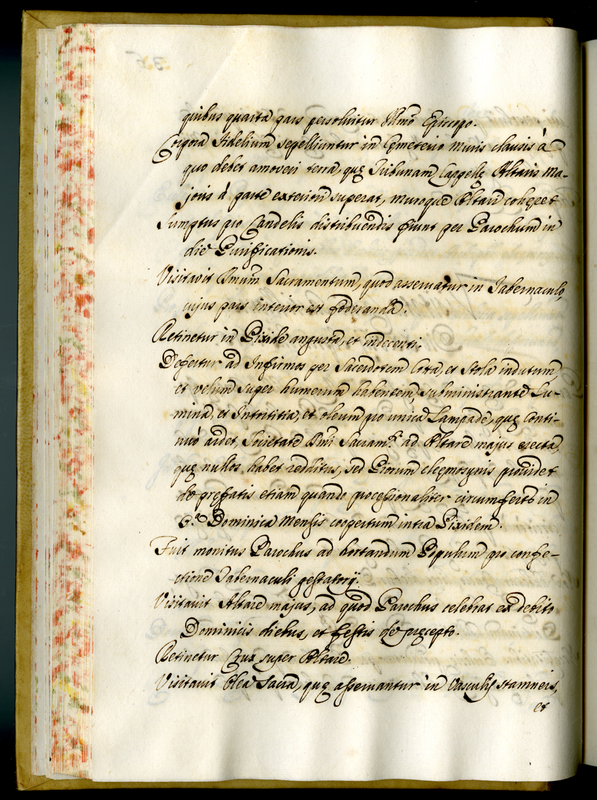 quibus quarta pars persolvitur Illmo Episcopo.
Corpora Fidelium sepelliuntur in Cæmeterio muris clausis à
quo debet amoveri terra quę Tribunam Cappellę Altaris Ma-
joris à parte exteriori superat, murumque Altaris
Sumptus pro Candelis distribuendis fiunt per Parochum in
die Purificationis.
Visitavit Smum Sacramentum, quod asservatur in Tabernaculo,
cujus pars interior est foderanda.
Retinetur in Pixide angusta, et indecenti.
Defertur ad Infirmos per Sacerdotem Cotta, et Stola indutum
et velum super humerum habentem, subministrante Lu-
mina, et Intortitia, et oleum pro unica Lampade, quę conti-
nuò ardet, Societate Smi Sacramti ad Altare majus erecta,
quę nullos habet redditus, sed Piorum elęemosynis providet
de prefatis etiam quando processionaliter circumfertur in
3.a Dominica Mensis coopertum intra Pixidem.
Fuit monitus Parochus ad hortandum Populum pro confe-
ctione Tabernaculi gestatorij.
Visitavit Altare majus, ad quod Parochus celebrat ex debito
Dominicis diebus, et festis de precepto.
Retinetur Crux super Altare.
Visitavit Olea Sacra, quę asservantur in Vasculis stamneis,
et